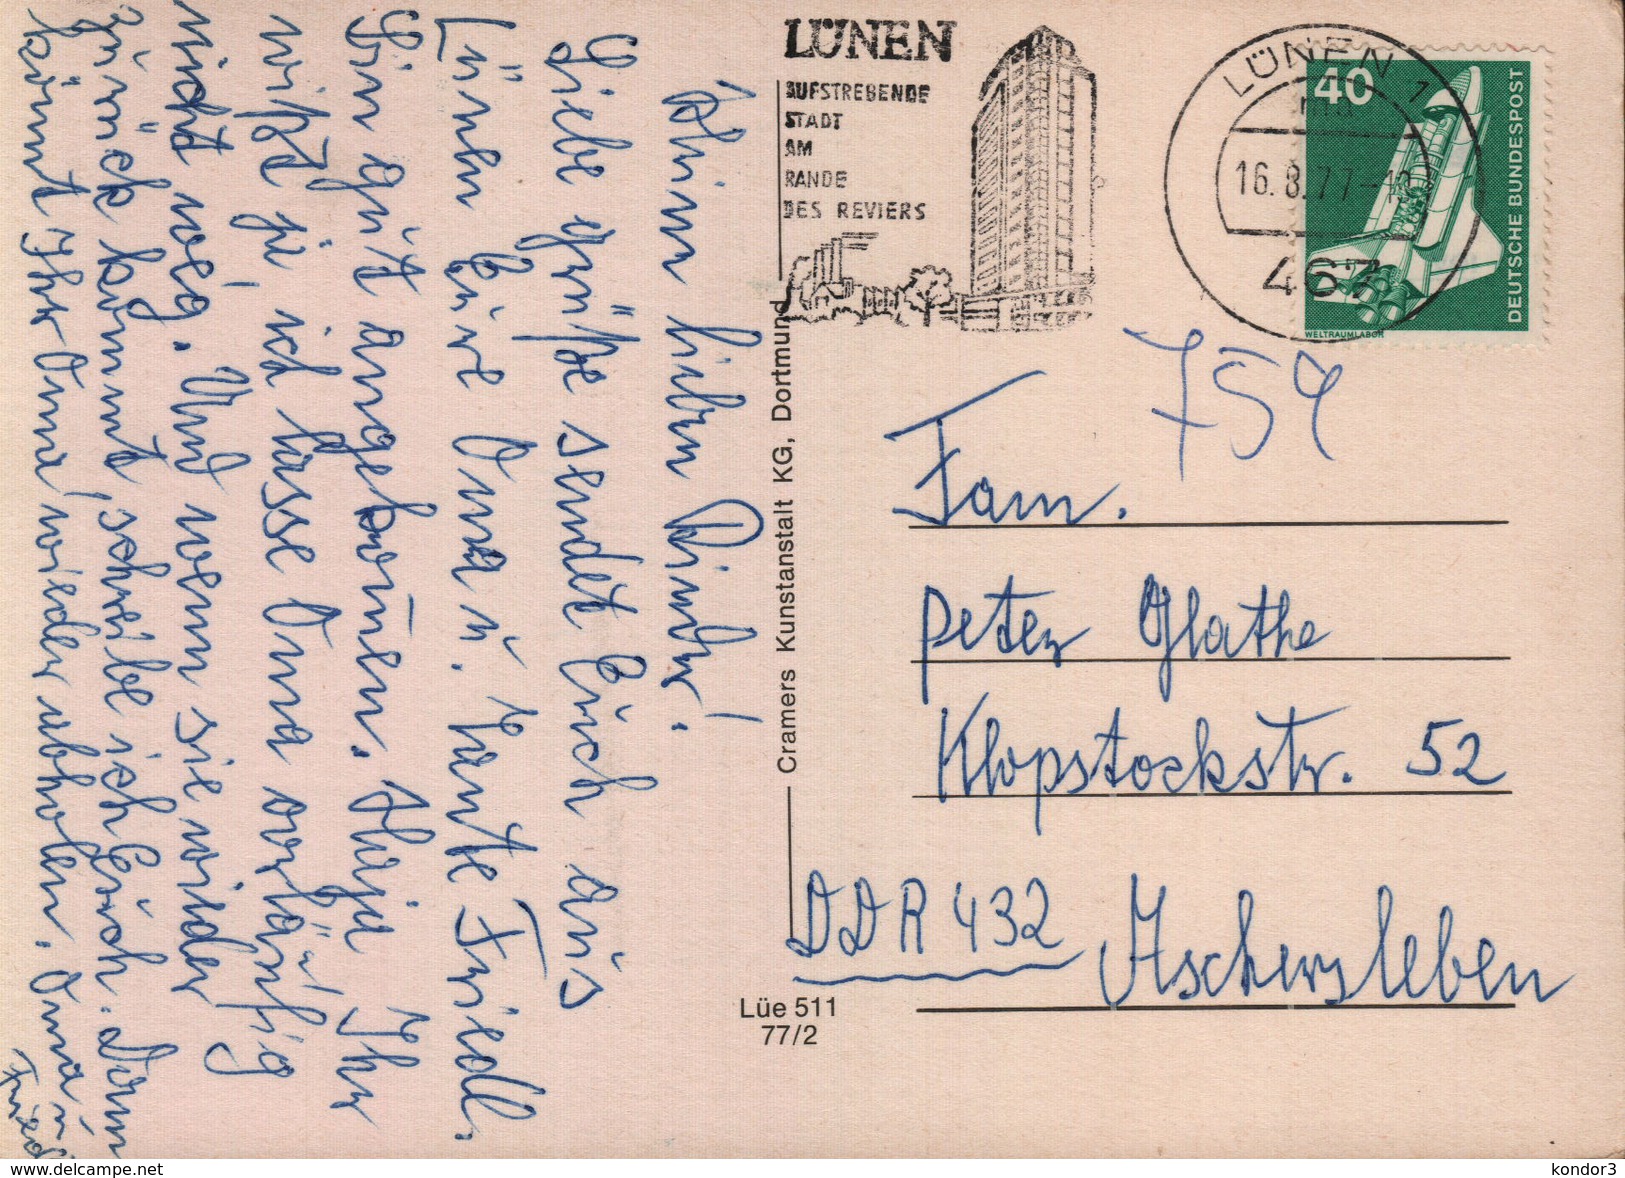 Meine lieben Kinder!
Liebe Grüße sendet Euch aus
Lünen Eure Oma u. Tante Friedl.
Bin gut angekommen. Naja Ihr
wißt ja, ich lasse Oma vorläufig
nicht weg. Und wenn sie wieder
zurück kommt, schreibe ich Euch. Dann
könnt Ihr Oma wieder abholen. Oma u.
Friedl
LÜNEN
AUFSTREBENDE
STADT
AM
RANDE
DES REVIERS
LÜNEN 1
16.8.77-
467
40
DEUTSCHE BUNDESPOST
WELTRAUMLABOR
759
Fam.
Peter Glathe
Klopstockstr. 52
DDR 432 Aschersleben
Cramers Kunstanstalt KG, Dortmund
Lüe 511
77/2
www.delcampe.net
kondor3